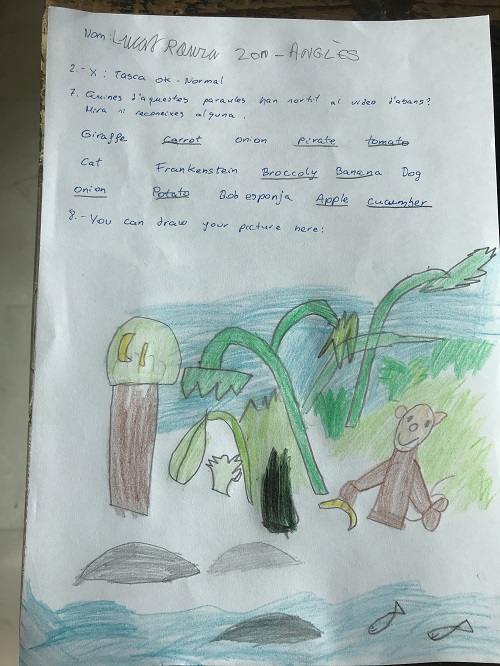 Nom: 2on - ANGLÈS
2.- X : Tasca ok - Normal
7. Quines d'aquestes paraules han sortit al video d'abans?
Mira si reconeixes alguna.
Giraffe carrot onion pirate tomato
Cat Frankenstein Broccoly Banana Dog
onion Potato Bob esponja Apple cucumber
8.- You can draw your picture here: